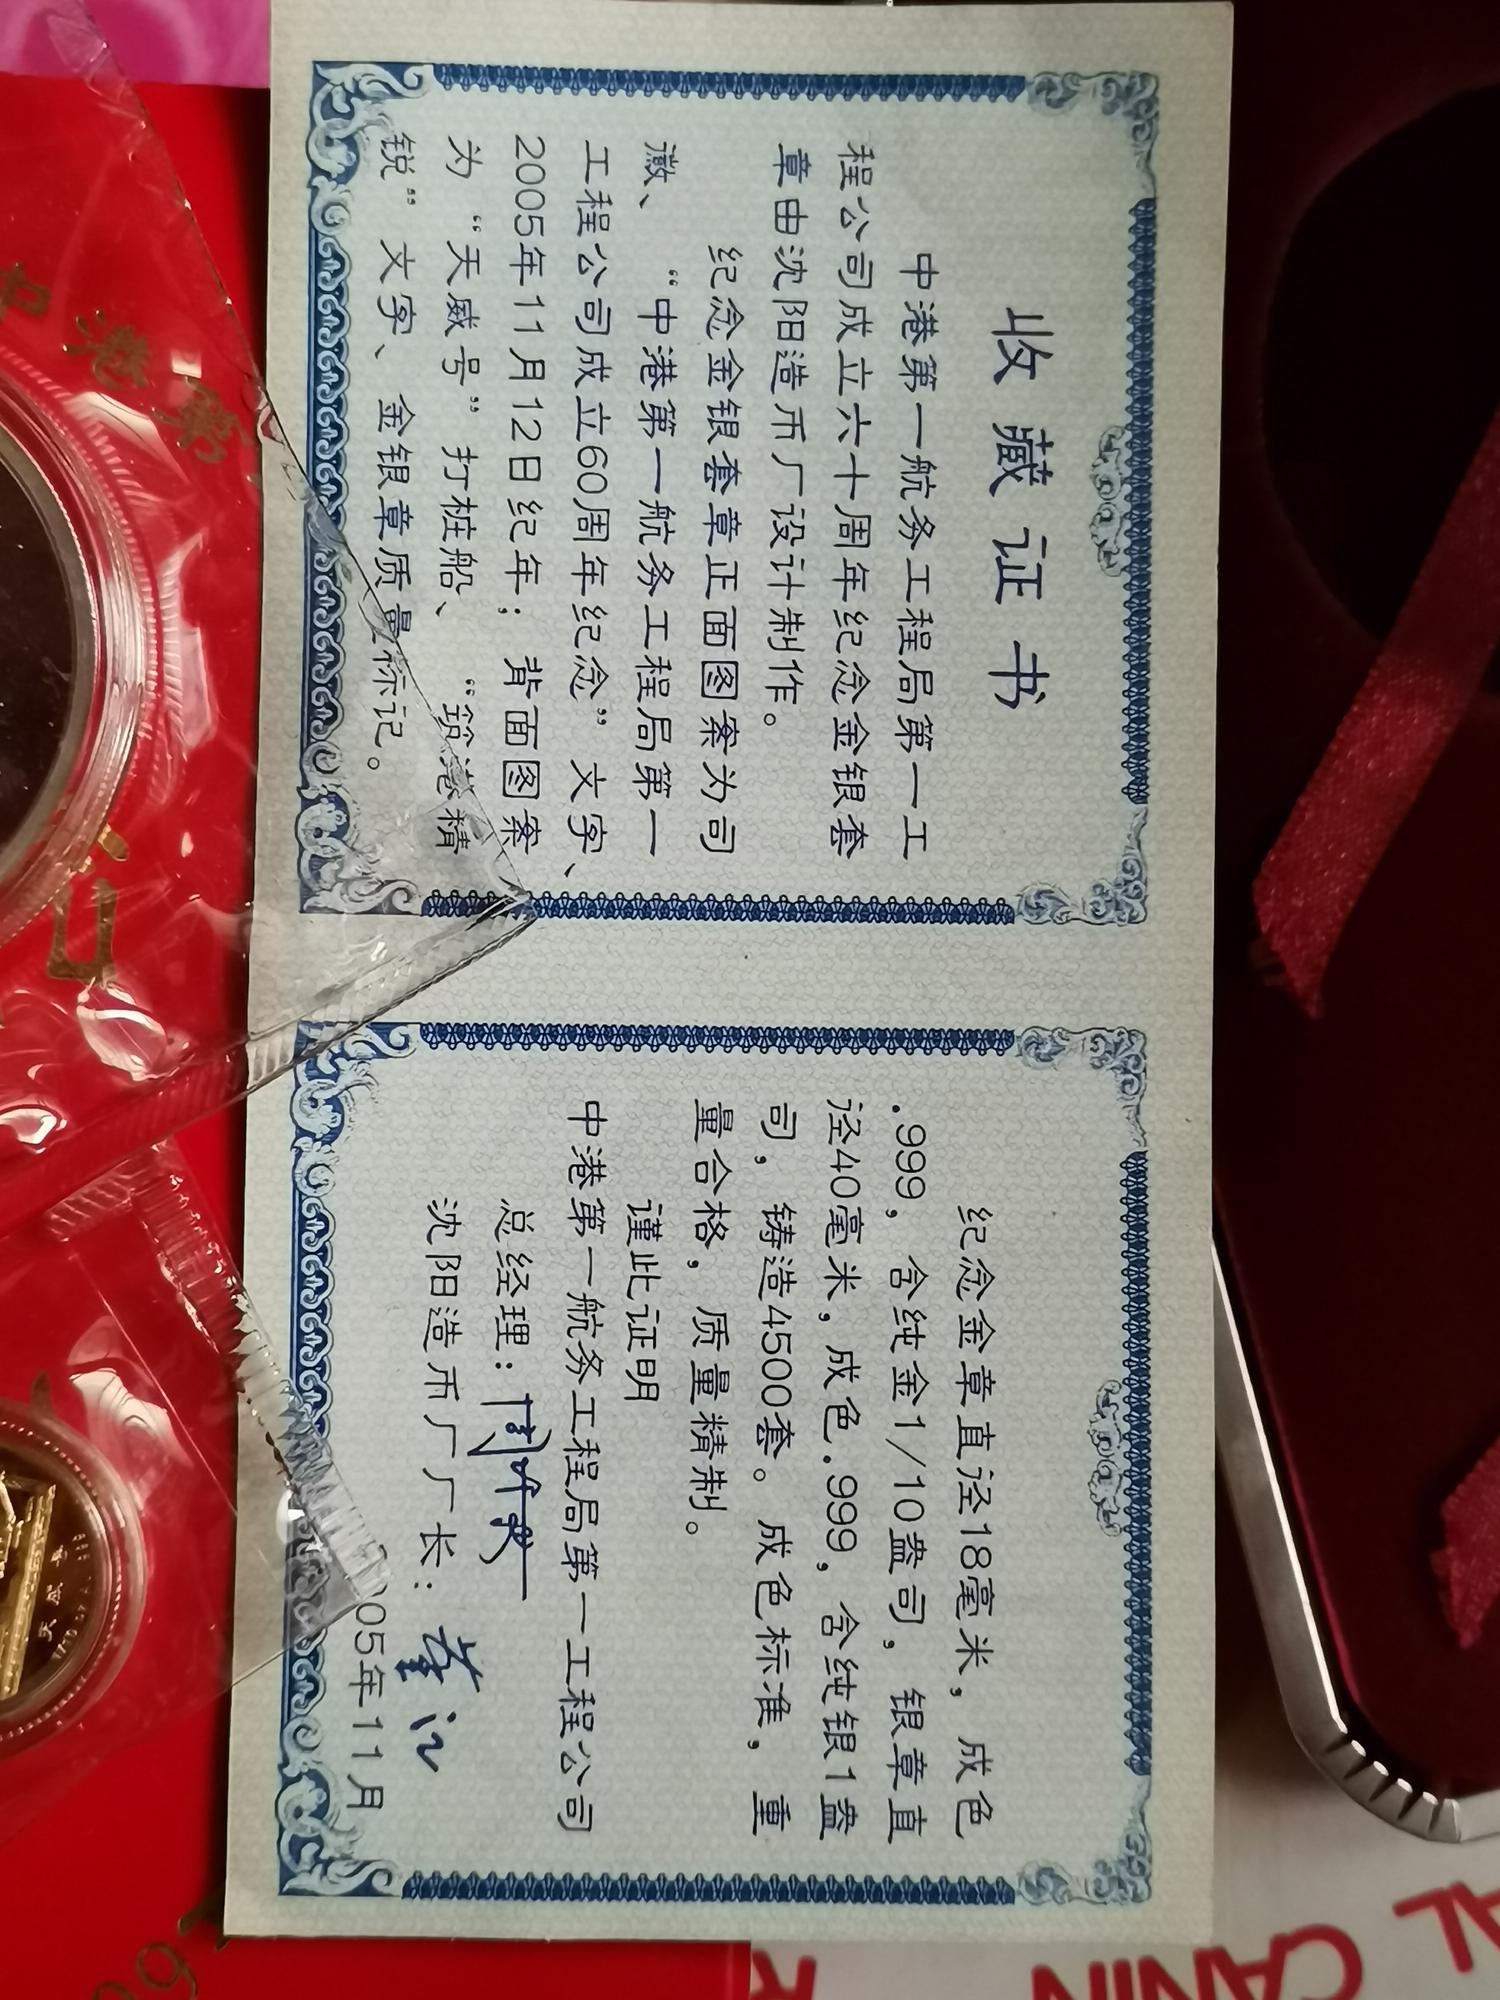 收藏证书
中港第一航务工程局第一工
程公司成立六十周年纪念金银套
章由沈阳造币厂设计制作。
纪念金银套章正面图案为司
徽、“中港第一航务工程局第一
工程公司成立60周年纪念”文字、
2005年11月12日纪年；背面图案
为“天威号”打桩船、“筑港精
锐”文字、金银章质量标记。
纪念金章直径18毫米，成色
.999，含纯金1/10盎司，银章直
径40毫米，成色.999，含纯银1盎
司，铸造4500套。成色标准，重
量合格，质量精制。
谨此证明
中港第一航务工程局第一工程公司
总经理：
沈阳造币厂厂长：
05年11月
中港第
天威号
CANIN